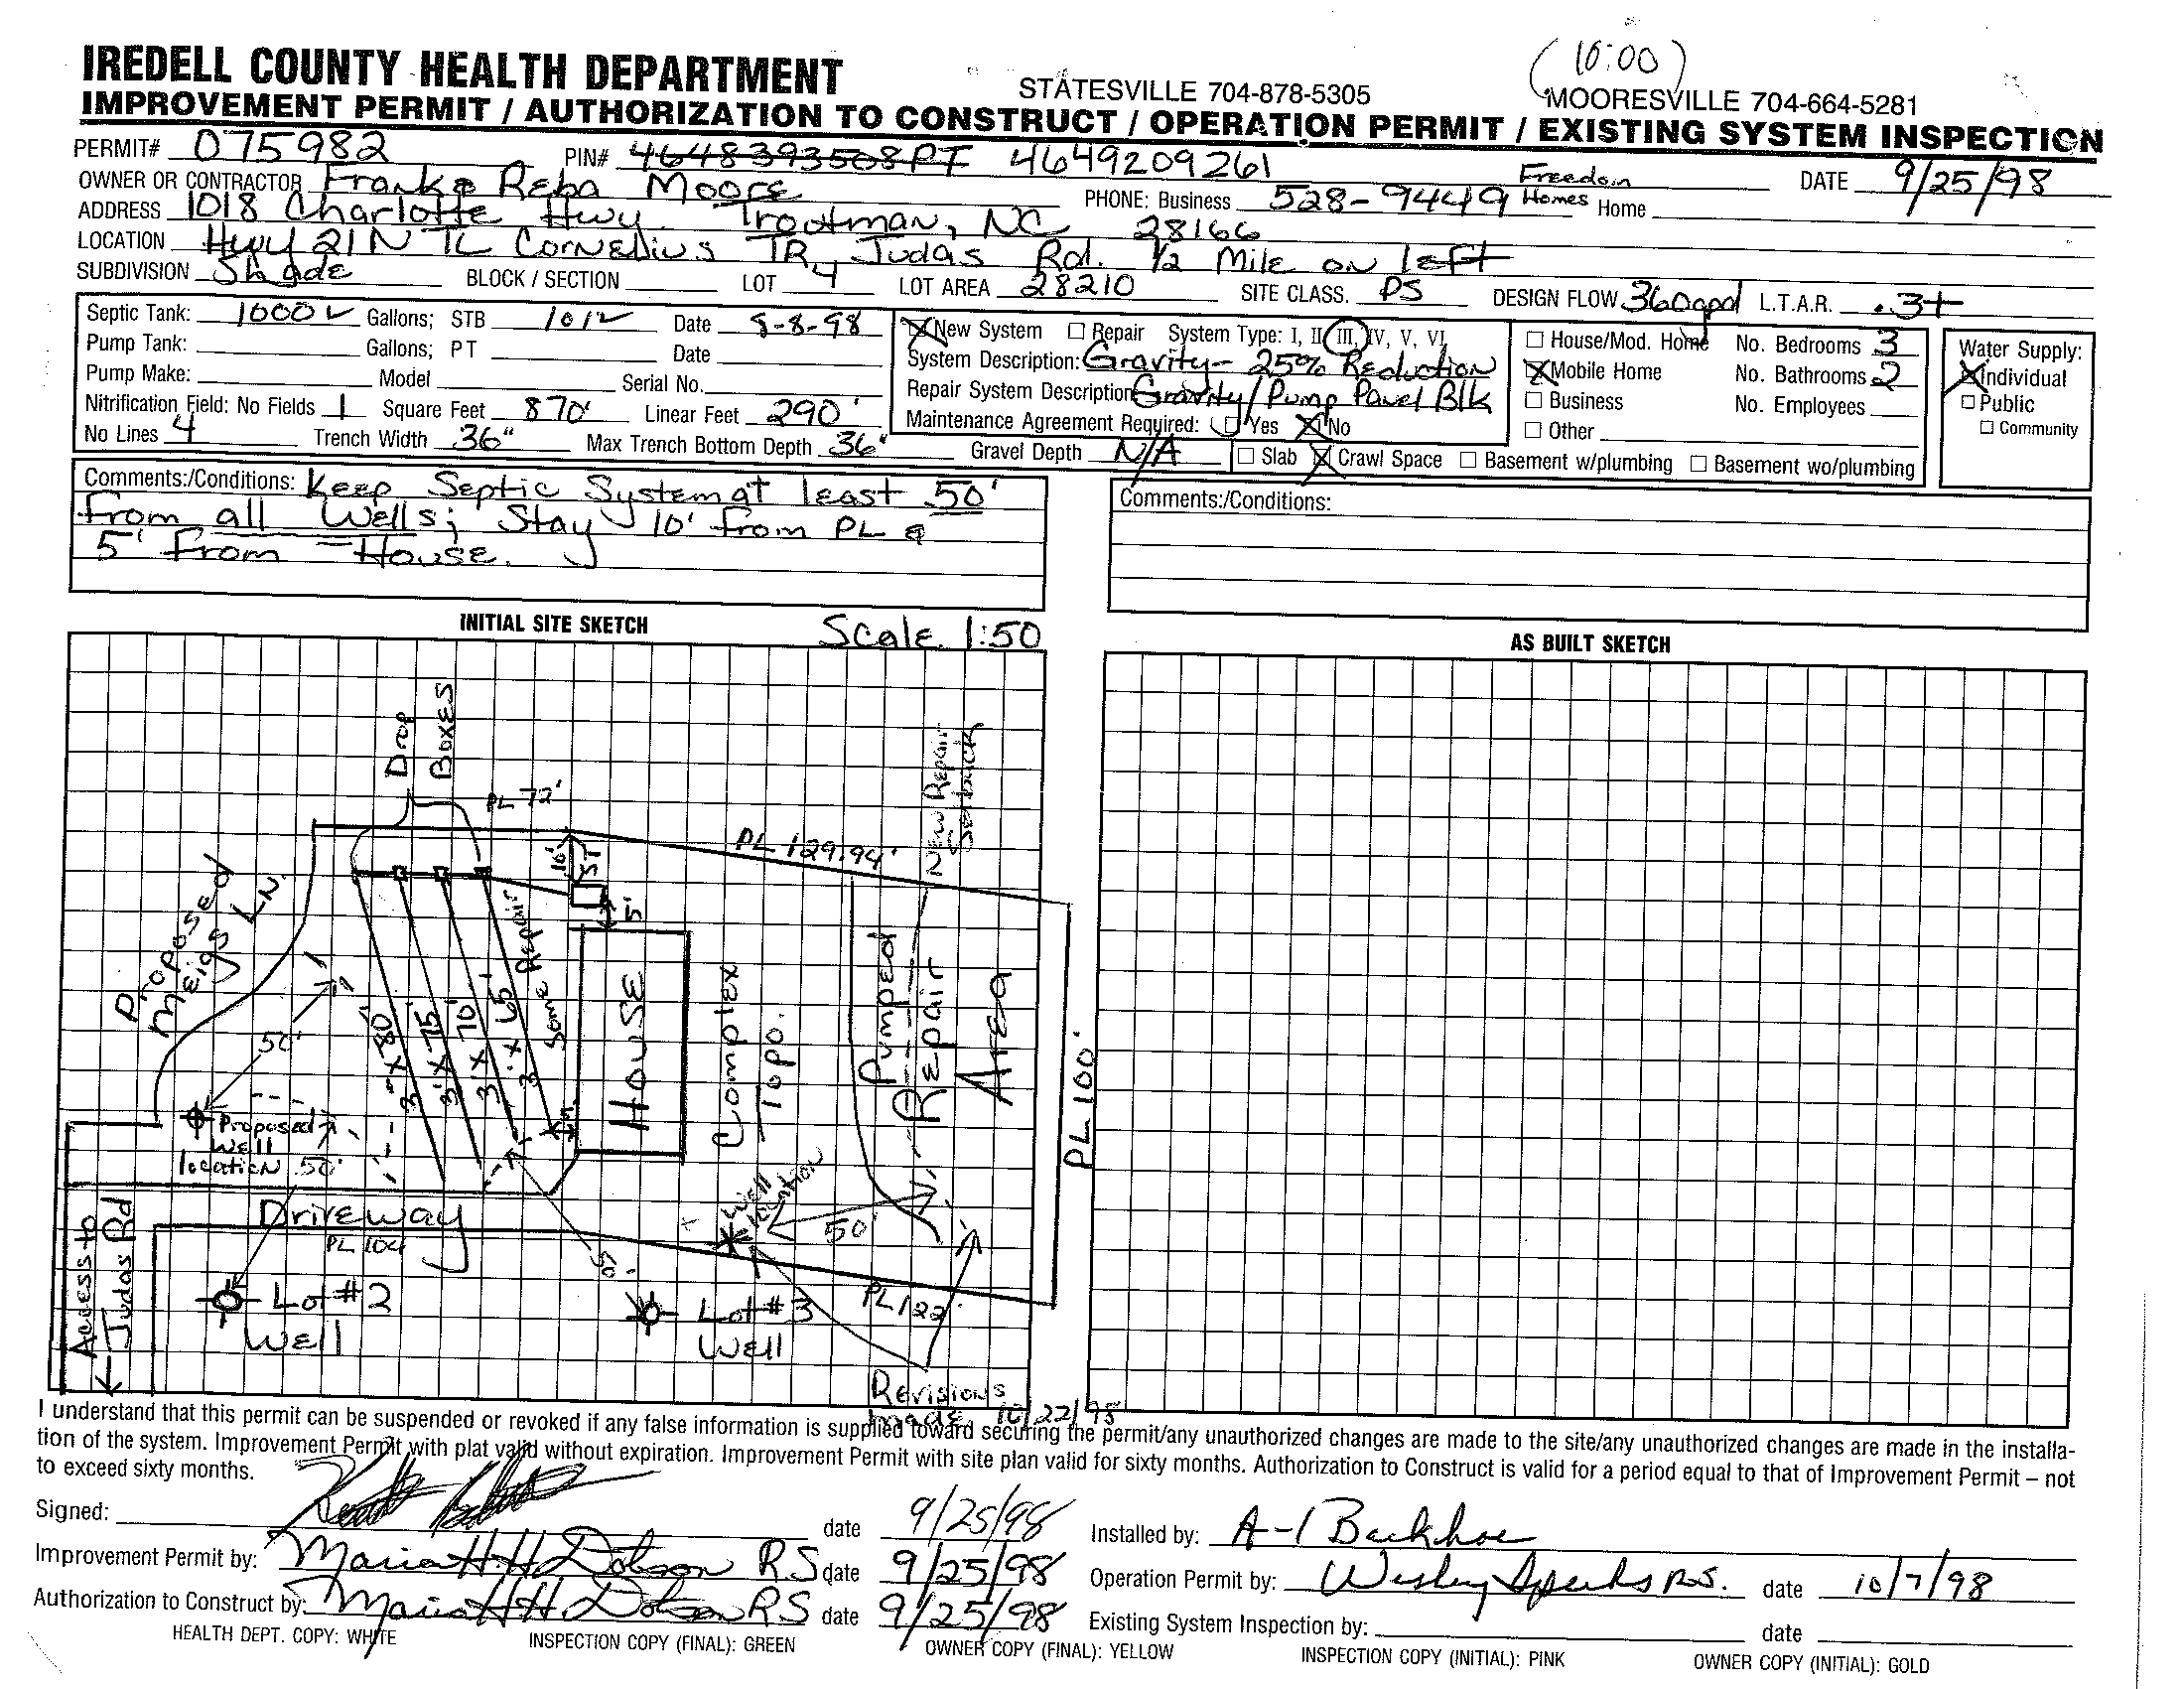 (10:00)
IREDELL COUNTY HEALTH DEPARTMENT STATESVILLE 704-878-5305 MOORESVILLE 704-664-5281
IMPROVEMENT PERMIT / AUTHORIZATION TO CONSTRUCT / OPERATION PERMIT / EXISTING SYSTEM INSPECTION
PERMIT# 075982 PIN# 4648393508PT 4649209261 DATE 9/25/98
OWNER OR CONTRACTOR Frank & Reba Moore PHONE: Business 528-9449 Freedom Homes Home
ADDRESS 1018 Charlotte Hwy. Troutman, NC 28166
LOCATION Hwy 21N TL Cornelius TR Judas Rd. 1/2 Mile on left
SUBDIVISION Shade BLOCK / SECTION LOT 4 LOT AREA 28210 SITE CLASS. PS DESIGN FLOW 360gpd L.T.A.R. .3+
Septic Tank: 1000 Gallons; STB 1012 Date 9-8-98
Pump Tank: Gallons; PT Date
Pump Make: Model Serial No.
Nitrification Field: No Fields 1 Square Feet 870' Linear Feet 290'
No Lines 4 Trench Width 36" Max Trench Bottom Depth 36" Gravel Depth N/A
New System Repair System Type: I, II, III, IV, V, VI
System Description: Gravity- 25% Reduction
Repair System Description Gravity/Pump Panel Blk
Maintenance Agreement Required: Yes No
Slab Crawl Space Basement w/plumbing Basement wo/plumbing
House/Mod. Home No. Bedrooms 3
Mobile Home No. Bathrooms 2
Business No. Employees
Other
Water Supply:
Individual
Public
Community
Comments:/Conditions: Keep Septic System at least 50'
from all Wells; Stay 10' from PL &
5' from House.
Comments:/Conditions:
INITIAL SITE SKETCH Scale 1:50
AS BUILT SKETCH
Drop
Boxes
PL 72'
PL 129.94'
New Repair
Setback
10'
ST
5'
Proposed
Meigs LN.
50'
3' X 80'
3' X 75'
3' X 70'
3' X 65'
Some Repair
HOUSE
Complex
Topo.
Pumped
Repair
Area
PL 100'
Proposed
Well
location 50'
Well
location
50'
Driveway
PL 104
Access to
Judas Rd
Lot #2
Well
Lot #3
Well
PL 122'
Revisions
made 10/22/98
I understand that this permit can be suspended or revoked if any false information is supplied toward securing the permit/any unauthorized changes are made to the site/any unauthorized changes are made in the installa-
tion of the system. Improvement Permit with plat valid without expiration. Improvement Permit with site plan valid for sixty months. Authorization to Construct is valid for a period equal to that of Improvement Permit – not
to exceed sixty months.
Signed: date 9/25/98
Installed by: A-1 Backhoe
Improvement Permit by: Maria H.H. Dobson RS date 9/25/98
Operation Permit by: Wesley Sparks R.S. date 10/7/98
Authorization to Construct by: Maria H.H. Dobson RS date 9/25/98
Existing System Inspection by: date
HEALTH DEPT. COPY: WHITE INSPECTION COPY (FINAL): GREEN OWNER COPY (FINAL): YELLOW INSPECTION COPY (INITIAL): PINK OWNER COPY (INITIAL): GOLD